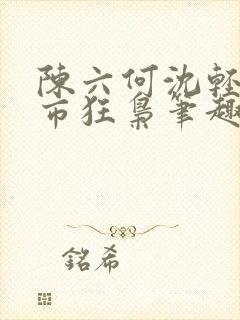 陳六何沈輕
市狂梟筆趣
銘希